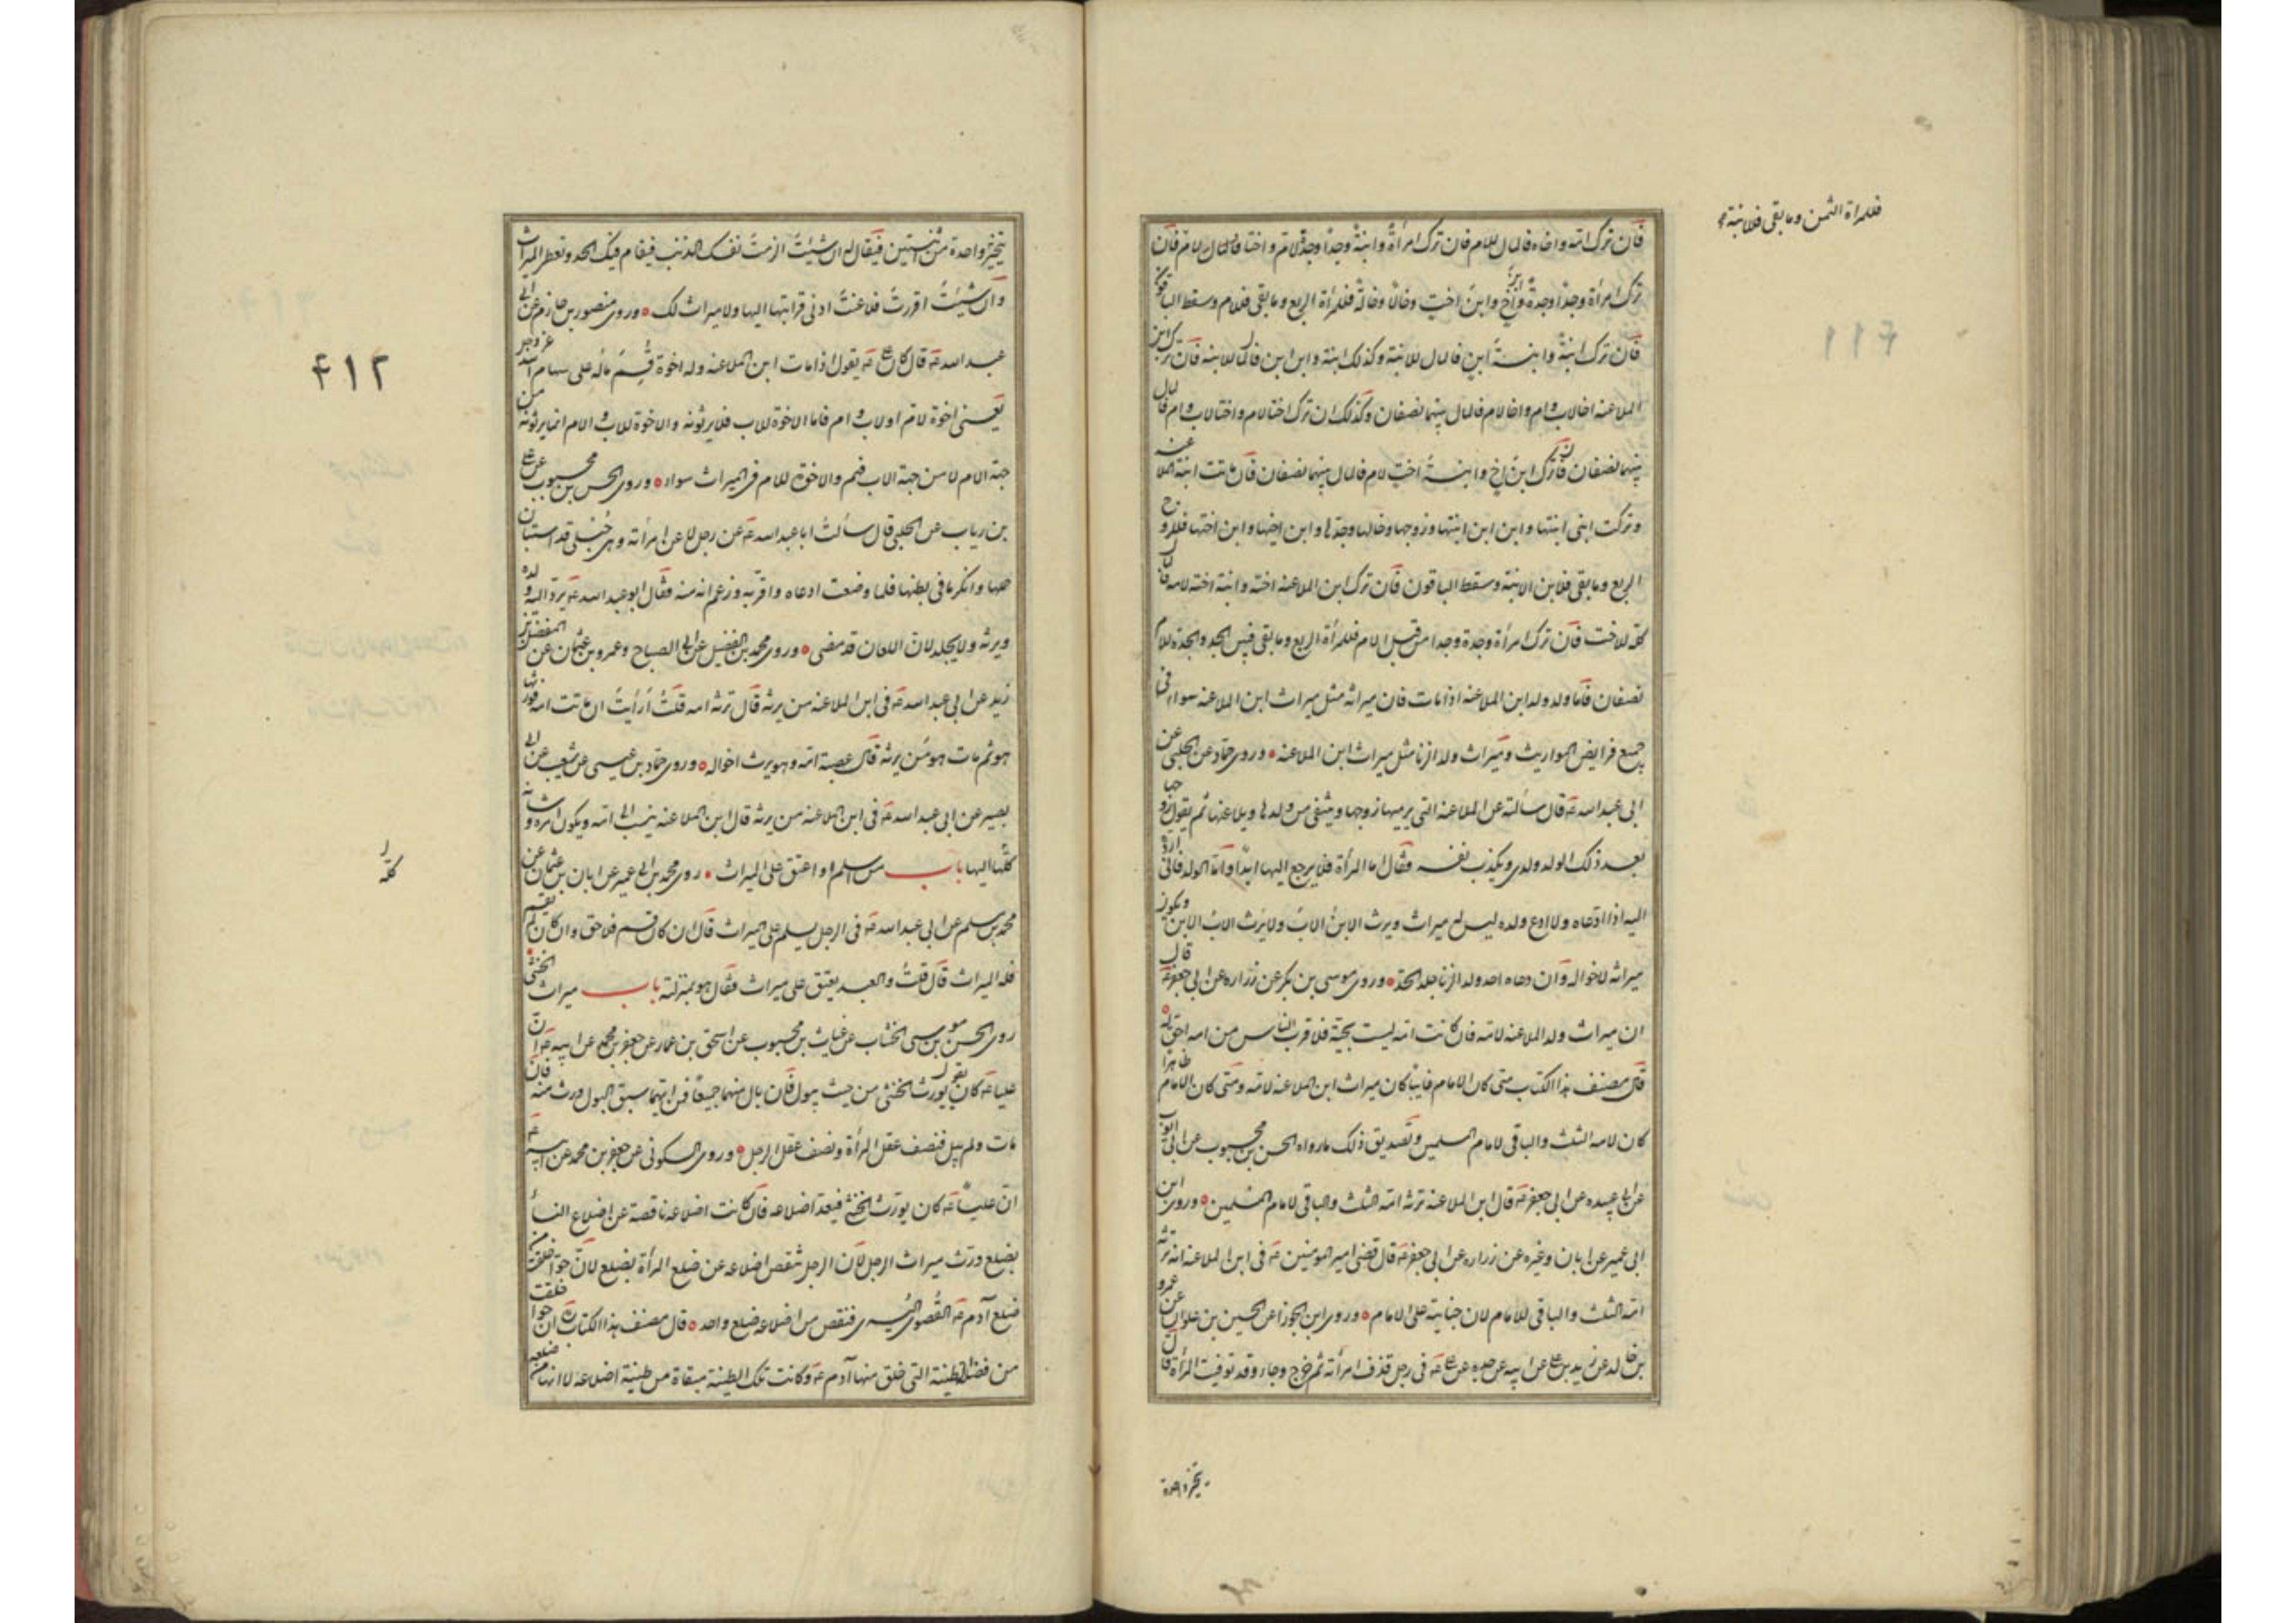 فللمرأة الثمن وما بقي فللابنة
فان ترك امه واخاه فالمال للام فان ترك امرأة وابنة وجدا وجدة لام واختا فالمال للام فان
ترك امرأة وجدا وجدة وابن اخ وابن اخت وخالا وخالة فللمرأة الربع وما بقي فللام وسقط الباقون
فان ترك ابنة وابنة ابن فالمال للابنة وكذلك ابنة وابن ابن فالمال للابنة فان ترك ابن
الملاعنه اخا لاب وام واخا لام فالمال بينهما نصفان وكذلك ان ترك اختا لام واختا لاب وام فالمال
بينهما نصفان فان ترك ابن اخ وابنة اخت لام فالمال بينهما نصفان فان ماتت ابنة الملاعنه
وتركت ابنى ابنتها وابن ابن ابنتها وزوجها وخالها وجدها وابن اخيها وابن اختها فللزوج
الربع وما بقي فلابن الابنة وسقط الباقون فان ترك ابن الملاعنه اخته وابنة اخته لامه فالمال
كله للاخت فان ترك امرأة وجدة وجدا من قبل الام فللمرأة الربع وما بقي فبين الجد والجدة للام
نصفان فاما ولد ولد ابن الملاعنه اذا مات فان ميراثه مثل ميراث ابن الملاعنه سواء فى
جميع فرايض المواريث وميراث ولد الزنا مثل ميراث ابن الملاعنه ٥ وروى حماد عن الحلبى عن
ابى عبد الله ع قال سألته عن الملاعنه التى يرميها زوجها وينتفى من ولدها ويلاعنها ثم يقول زوجها
بعد ذلك الولد ولدى ويكذب نفسه فقال اما المرأة فلا يرجع اليها ابدا واما الولد فانى ارده
اليه اذا ادعاه ولا ادع ولده ليس له ميراث ويرث الابن الاب ولا يرث الاب الابن ويكون
ميراثه لاخواله وان دعاه احد ولد الزنا جلد الحد ٥ وروى موسى بن بكر عن زراره عن ابى جعفر ع قال
ان ميراث ولد الملاعنه لامه فان كانت امه ليست بحية فلاقرب الناس من امه اخواله
قال مصنف هذا الكتاب متى كان الامام غايبا كان ميراث ابن الملاعنه لامه ومتى كان الامام ظاهرا
كان لامه الثلث والباقى لامام المسلمين وتصديق ذلك ما رواه الحسن بن محبوب عن ابى ايوب
عن ابى عبيده عن ابى جعفر ع قال ابن الملاعنه ترثه امه الثلث والباقى لامام المسلمين ٥ وروى ابن
ابى عمير عن ابان وغيره عن زراره عن ابى جعفر ع قال قضى امير المومنين ع فى ابن الملاعنه انه ترثه
امه الثلث والباقى للامام لان جنايته على الامام ٥ وروى ابن الجوزا عن الحسين بن علوان عن عمرو
بن خالد عن زيد بن على عن ابيه عن جده عن على ع فى رجل قذف امرأته ثم خرج وجاء وقد توفيت المرأة قال
يخير واحدة
يتخير واحدة من ثنتين فيقال له ان شيئت الزمت نفسك الذنب فيقام فيك الحد وتعطى الميراث
وان شيئت اقررت فلاعنت ادنى قرابتها اليها ولا ميراث لك ٥ وروى منصور بن حازم عن ابى
عبد الله ع قال كان على ع يقول اذا مات ابن الملاعنه وله اخوة قسم ماله على سهام الله عز وجل
يعنى اخوة لام او لاب وام فاما الاخوة للاب فلا يرثونه والاخوة للاب والام انما يرثونه من
جهة الام لا من جهة الاب فهم والاخوة للام فى الميراث سواء ٥ وروى الحسن بن محبوب عن على
بن رياب عن الحلبى قال سألت ابا عبد الله ع عن رجل لاعن امرأته وهى حبلى قد استبان
حملها وانكر ما فى بطنها فلما وضعت ادعاه واقر به وزعم انه منه فقال ابو عبد الله ع يرد اليه ولده
ويرثه ولا يجلد لان اللعان قد مضى ٥ وروى محمد بن الفضيل عن ابى الصباح وعمرو بن عثمان عن المفضل عن
زيد عن ابى عبد الله ع فى ابن الملاعنه من يرثه قال ترثه امه قلت أرأيت ان ماتت امه فورثها
هو ثم مات هو من يرثه قال عصبة امه وهو يرث اخواله ٥ وروى حماد بن عيسى عن شعيب عن ابى
بصير عن ابى عبد الله ع فى ابن الملاعنه من يرثه قال ابن الملاعنه ينسب الى امه ويكون امره وشانه
كلها اليها باب من اسلم او اعتق على الميراث ٥ روى محمد بن ابى عمير عن ابان بن عثمان عن
محمد بن مسلم عن ابى عبد الله ع فى الرجل يسلم على الميراث قال ان كان قسم فلا حق وان كان لم يقسم
فله الميراث قال قلت والعبد يعتق على ميراث فقال هو بمنزلته باب ميراث الخنثى
روى الحسن بن موسى الخشاب عن غياث بن محبوب عن اسحق بن عمار عن جعفر بن محمد عن ابيه ع ان
عليا ع كان يقول يورث الخنثى من حيث يبول فان بال منهما جميعا فمن ايهما سبق البول ورث منه فان
مات ولم يبل فنصف عقل المرأة ونصف عقل الرجل ٥ وروى السكونى عن جعفر بن محمد عن ابيه ع
ان عليا ع كان يورث الخنثى فيعد اضلاعه فان كانت اضلاعه ناقصة عن اضلاع النسا
بضلع ورث ميراث الرجل لان الرجل تنقص اضلاعه عن ضلع المرأة بضلع لان حوا خلقت من
ضلع آدم ع القصوى اليسرى فنقص من اضلاعه ضلع واحد ٥ قال مصنف هذا الكتاب ره ان حوا خلقت
من فضل الطينة التى خلق منها آدم ع وكانت تلك الطينة مبقاة من طينة اضلاعه لا انها من ضلعه
۴۱۲
كله